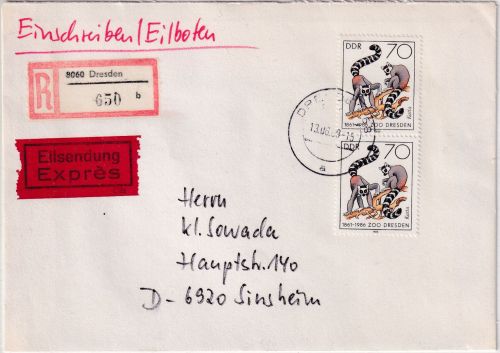 Einschreiben/Eilboten
R
8060 Dresden
650 b
Eilsendung
Exprès
DDR 70
Katta
1861-1986 ZOO DRESDEN
DDR 70
Katta
1861-1986 ZOO DRESDEN
Herrn
Kl. Sowada
Hauptstr. 140
D-6920 Sinsheim